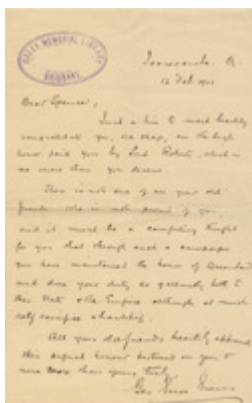 OXLEY MEMORIAL LIBRARY
BRISBANE
12 Feb. 1902
Dear Spencer,
Just a line to most heartily
congratulate you, old chap, on the high
honor paid you by Lord Roberts, which is
no more than you deserve.
There is not one of all your old
friends who is not proud of you,
and it must be a comforting thought
for you that through such a campaign
you have maintained the honor of Queensland
and done your duty so gallantly both to
the State & the Empire although at much
self sacrifice & hardship.
All your old friends heartily
this signal honour bestowed on you &
none more than yours truly
Geo